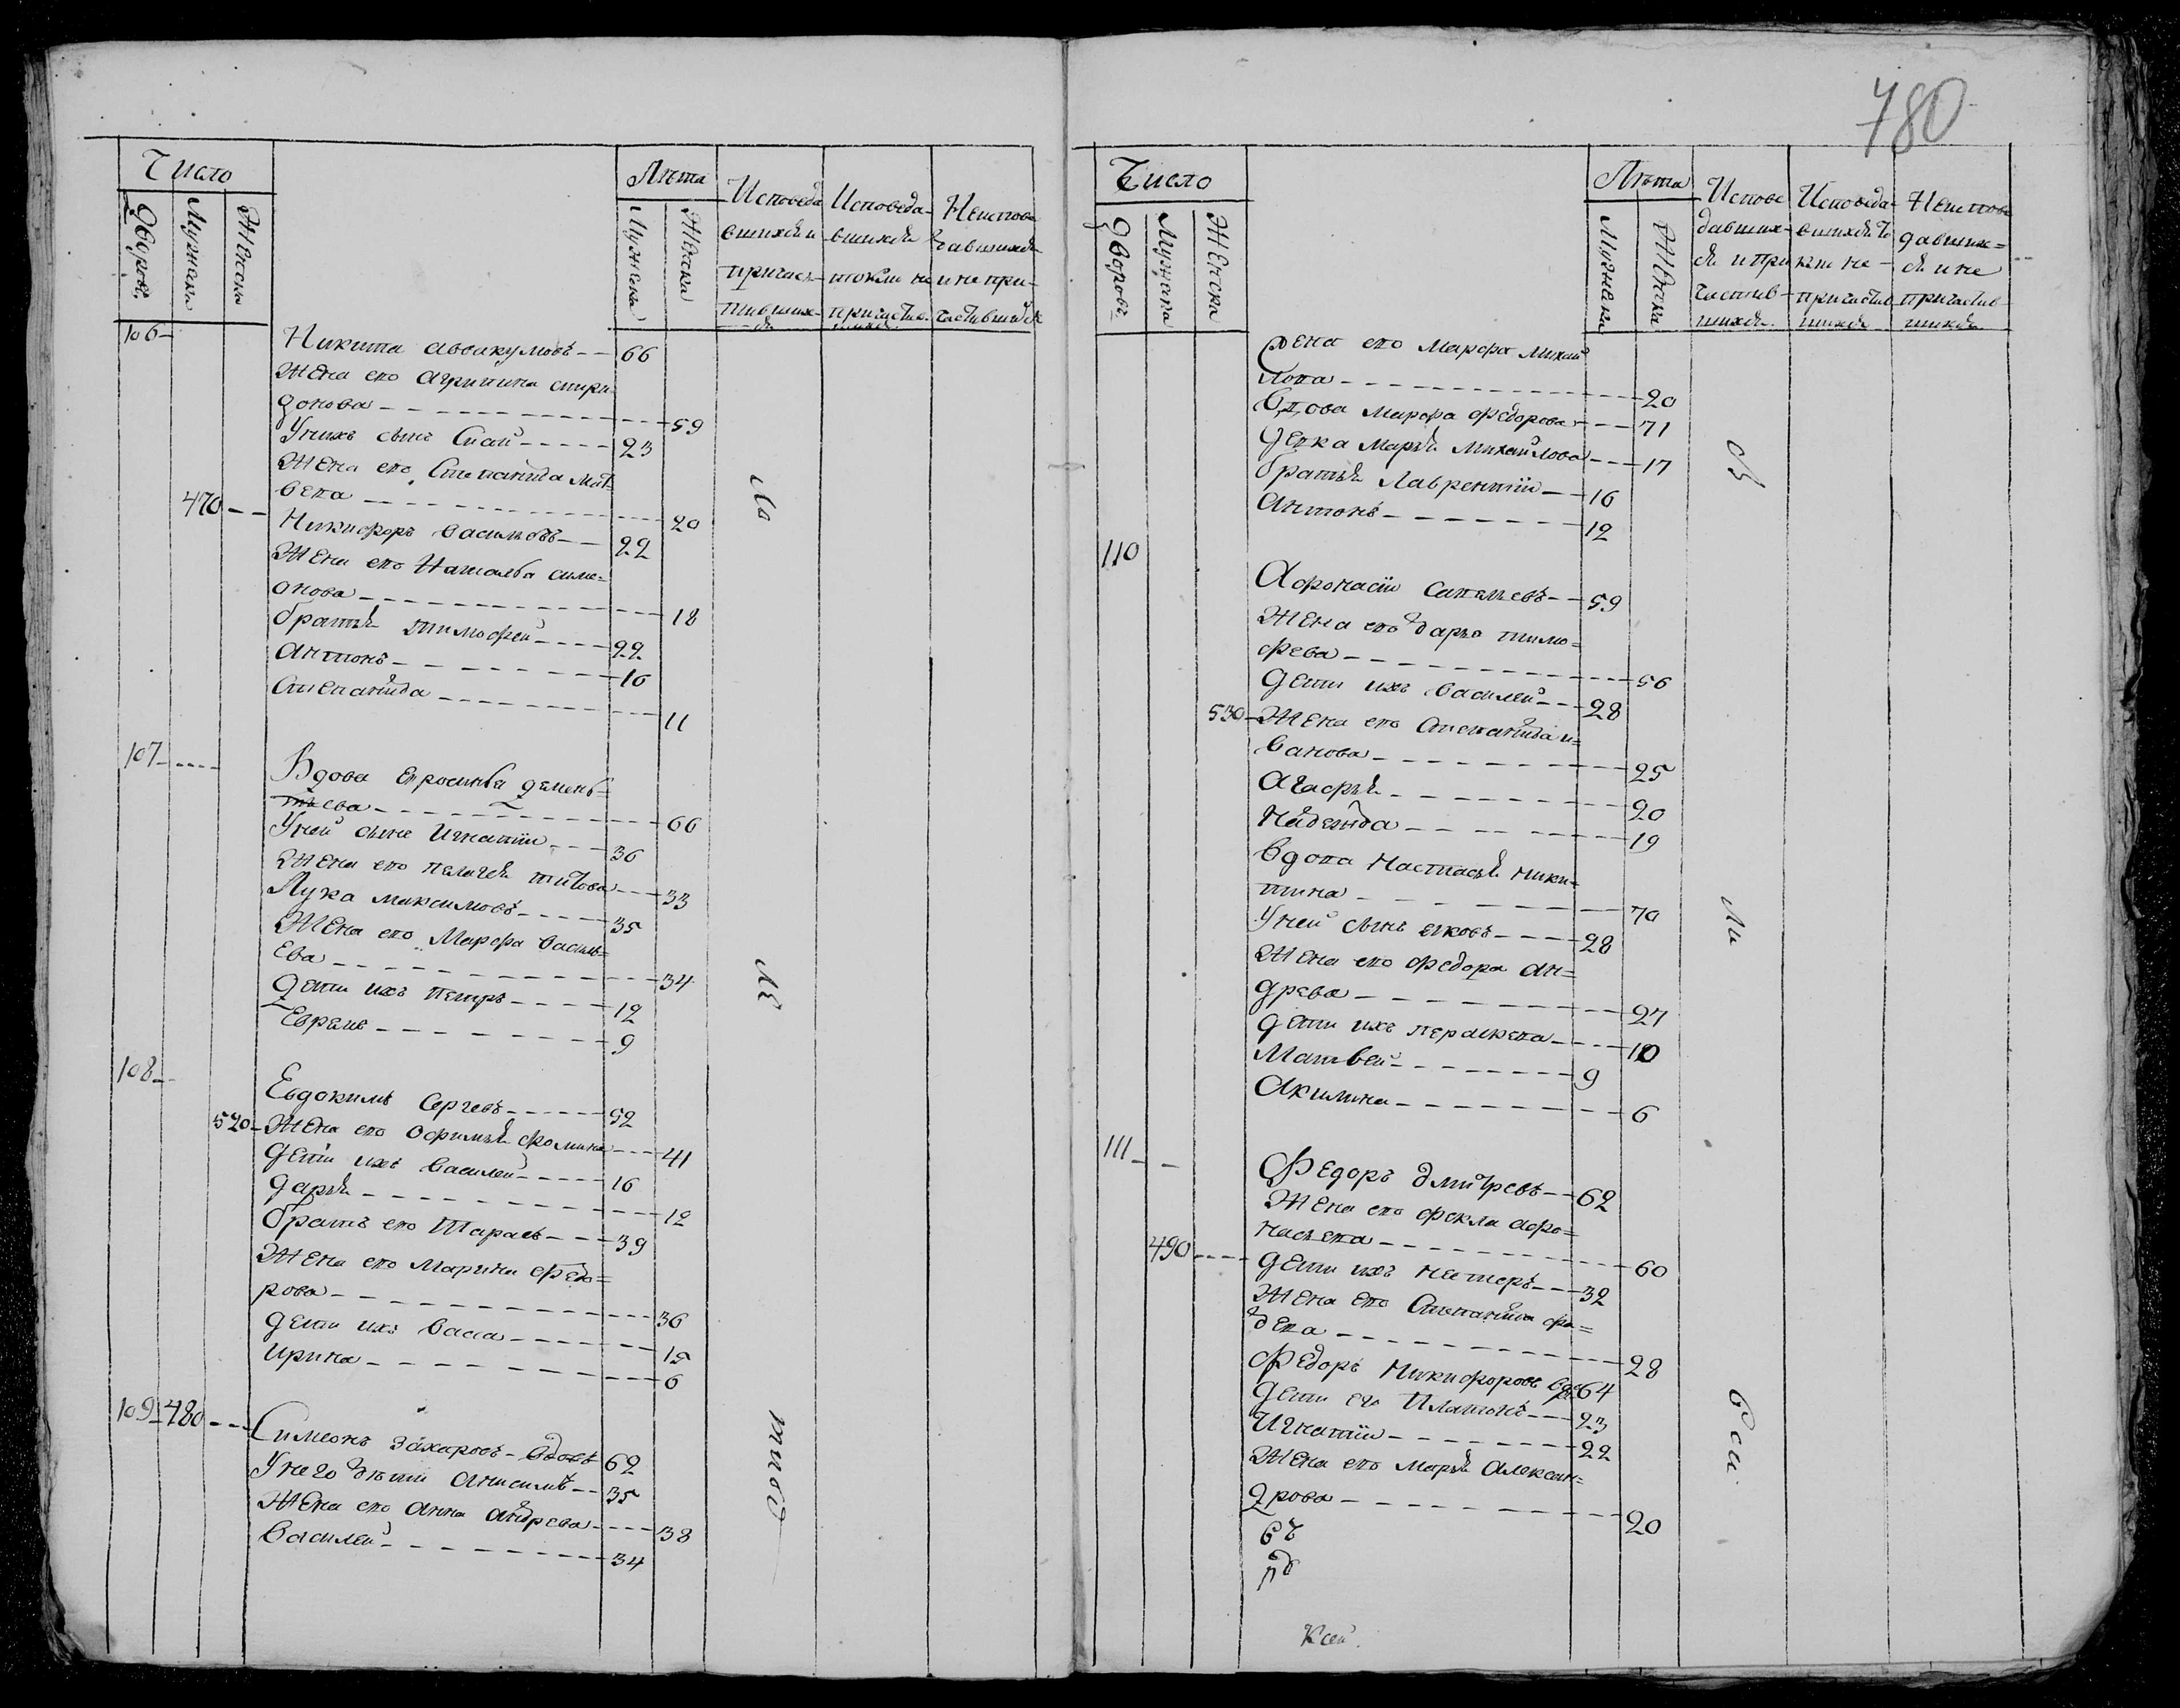 780
Число
Дворовъ
Мужска
Женска
Лѣта
Мужска
Женска
Исповеда
вшихся и
причас-
тивших-
ся
Исповеда-
вшихся
токмо не
причастив
шихся
Неиспове
давшихся
и не при-
частившихся
106
Никита Аввакумовъ 66
Жена его Агрипина Спири
донова 59
У нихъ сынъ Исай 23
Жена его Степанида Мат-
веева 20
470 Никифоръ Васильевъ 22
Жена его Наталья Симе=
онова 18
братья Тимофей 22
Антонъ 16
Степанида 11
107
Вдова Епросинья демень=
тьева 66
У ней сынъ Игнатiй 36
Жена его Пелагея Титова 33
Лука Максимовъ 35
Жена его Марфа Василь=
ева 34
дети ихъ Петръ 12
Евремъ 9
108
Евдокимъ Сергевъ 52
520 Жена его Офимья Фомина 41
дети ихъ Василей 16
дарья 12
братъ его Тарасъ 39
Жена его Марина Федо=
рова 36
дети ихъ Васса 15
Ирина 6
109 480
Симеонъ Захаровъ вдовъ 62
У него дѣти Анисимъ 35
Жена его Анна Андрева 38
Василей 34
Число
Дворовъ
Мужска
Женска
Лѣта
Мужска
Женска
Испове
давших-
ся и при
частив-
шихся
Исповеда-
вшихся то
кмо не
причастив
шихся
Неиспове
давших=
ся и не
причастив
шихся
Жена его Марфа Михай
лова 20
Вдова Марфа Федорова 71
девка Марья Михайлова 17
братья Лаврентiй 16
Антонъ 12
110
Афонасiй Савельевъ 59
Жена его дарья Тимо=
фева 56
дети ихъ Василей 28
530 Жена его Степанида И=
ванова 25
Агафья 20
Надежда 19
вдова Настасья Ники=
тина 70
У ней сынъ Яковъ 28
Жена его Федора Ан=
древа 27
дети ихъ Парасkева 10
Матвей 9
Акилина 6
111
Федоръ дмитревъ 62
Жена его Фекла Афо=
насьева 60
490 дети ихъ Нестеръ 32
Жена его Степанида Фа=
деева 28
Федоръ Никифоровъ вдо 64
дети его Платонъ 23
Игнатiй 22
Жена его Марья Алексан=
дрова 20
Ксей